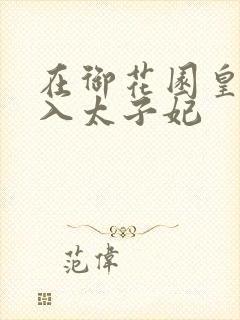 在御花园皇
入太子妃
范偉